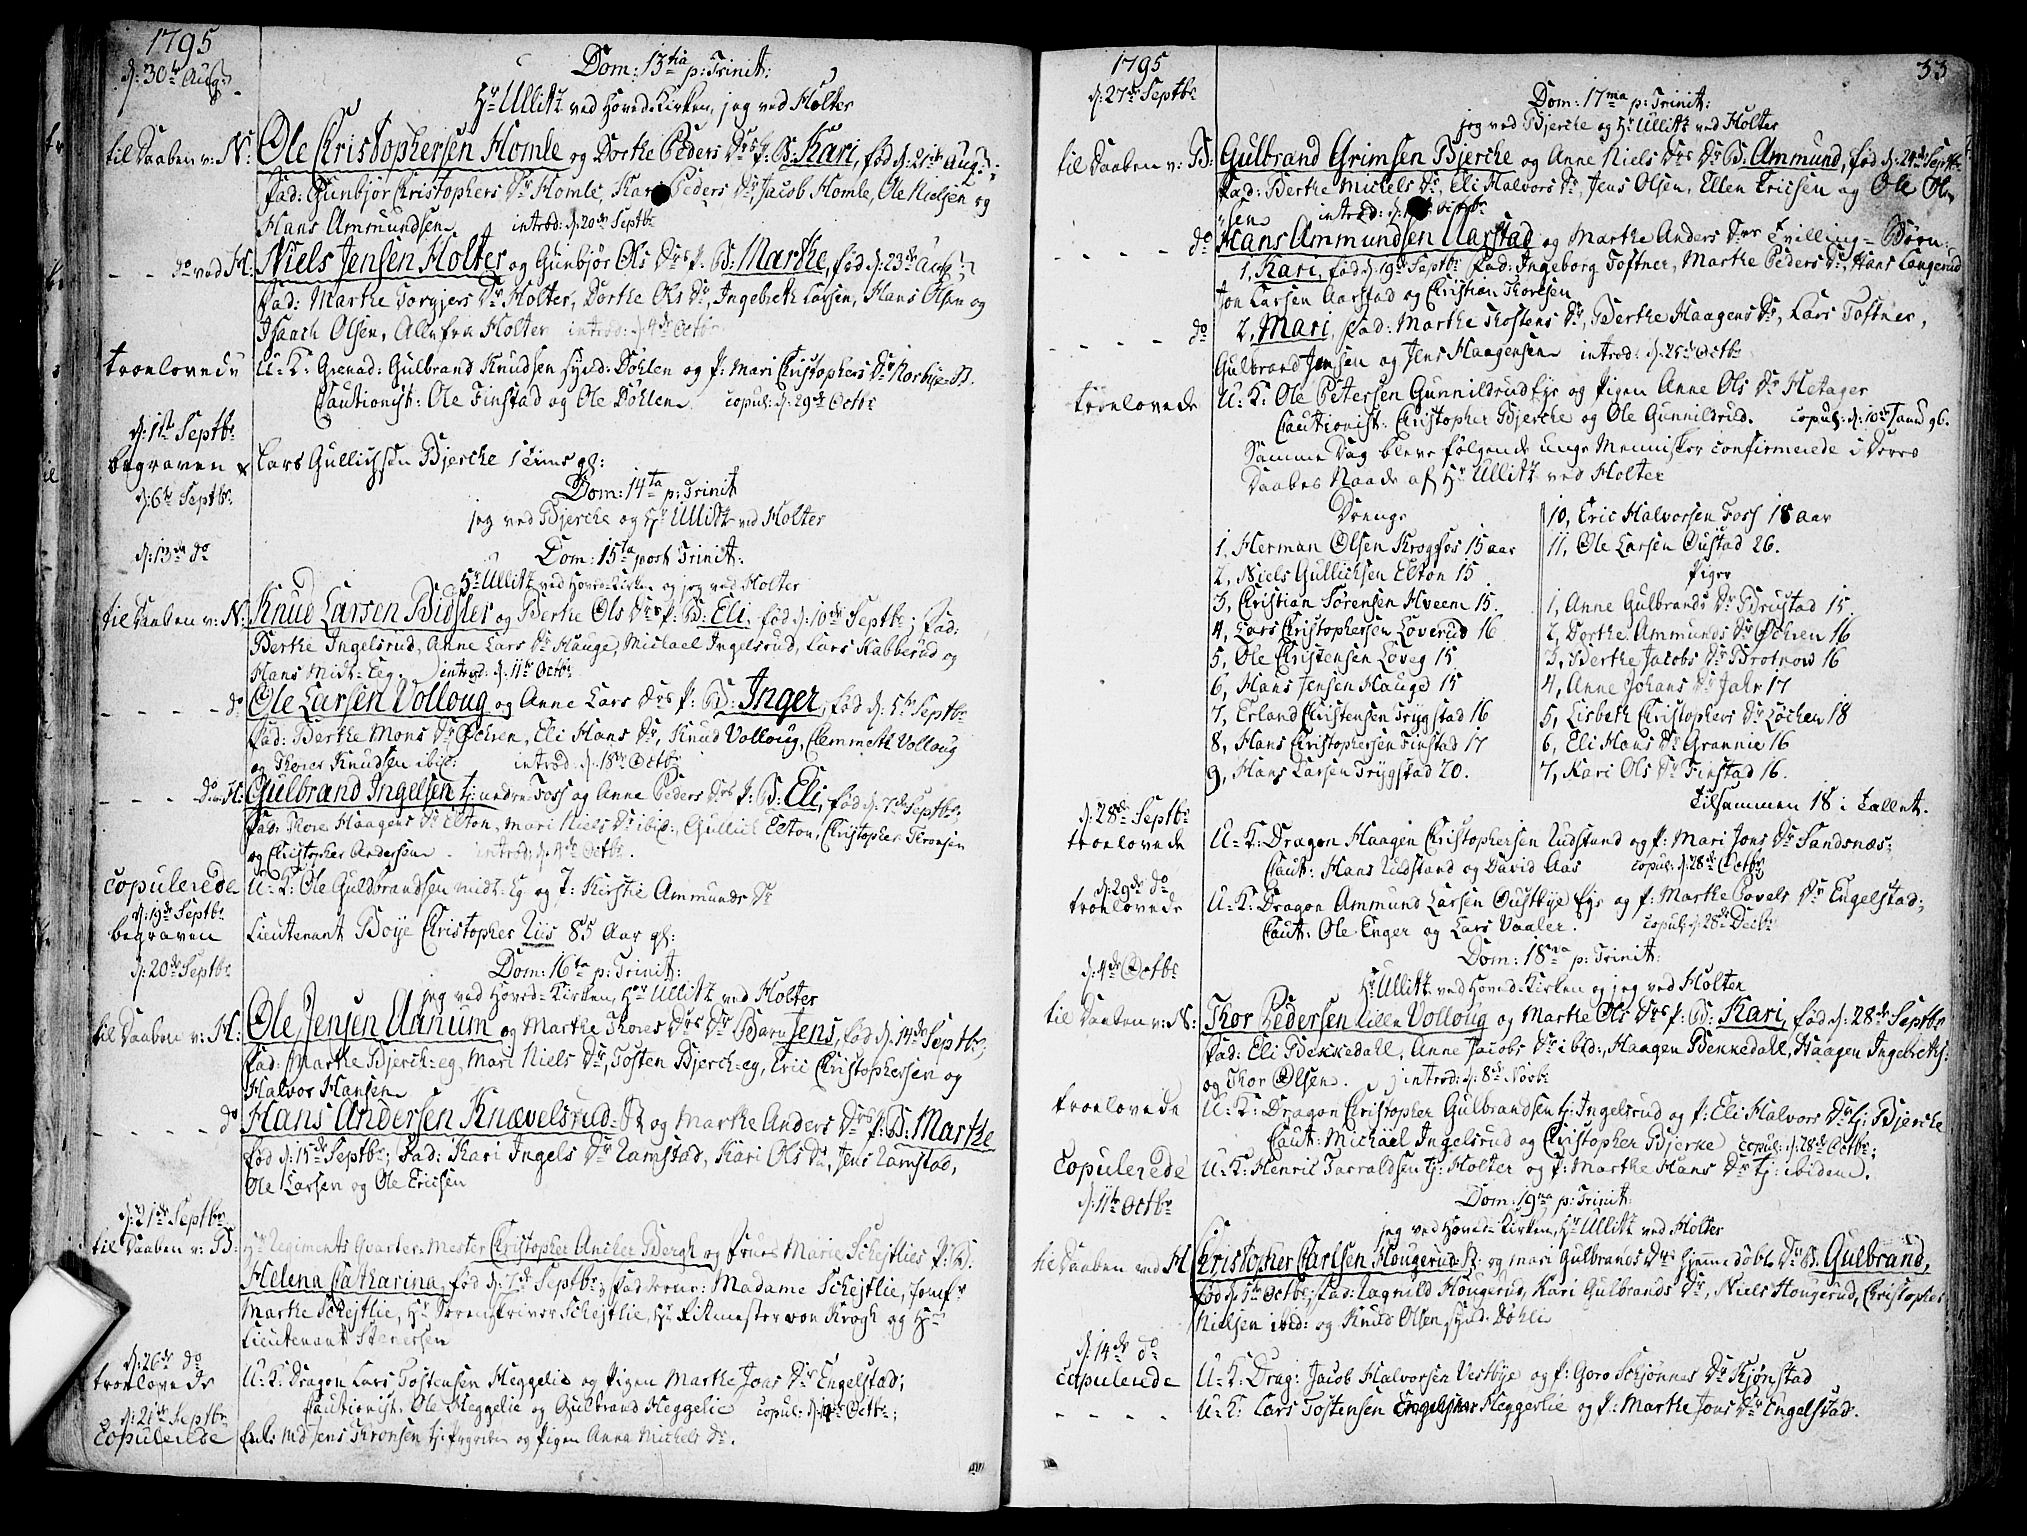 1795
d: 30te Aug:
Dom: 13tia p: Trinit:
Hr Ullitz ved Hoved Kirken, jeg ved Holter
til Daaben v: N: Ole Christophersen Homle og Dorthe Peders Drs f: B: Kari, fød d: 21de Aug:;
Fad: Gunbjør Christophers Dr Homle, Kari Peders Dr, Jacob Homle, Ole Nielsen og
Hans Ammundsen introd: d: 20de Septbr
do ved H: Niels Jensen Holter og Gunbjør Ols Drs f: B: Marthe, fød d: 23de Aug:;
Fad: Marthe Torgjers Dr Holter, Dorthe Ols Dr, Ingebreth Larsen, Hans Olsen og
Isaach Olsen, Alle fra Holter introd: d: 4de Octbr
troelovede U: K: Grenad: Gulbrand Knudsen synd: Døhlen og P: Mari Christophers Dr Norbye
Cautionist: Ole Finstad og Ole Døhlen copul: d: 29de Octbr
d: 1ste Septbr
begraven Lars Gullichsen Bjerche gl:
d: 6te Septbr
Dom: 14ta p: Trinit
jeg ved Bjerche og Hr Ullitz ved Holter
d: 13de do
Dom: 15ta post Trinit:
Hr Ullitz ved Hoved-Kirken og jeg ved Holter
til Daaben v: N: Knud Larsen Bidsler og Berthe Ols Drs f: B: Eli, fød d: 10de Septbr; Fad:
Berthe Ingelsrud, Anne Lars Dr Hauge, Michael Ingelsrud, Lars Kabberud og
Hans Midt-Eg. introd: d: 11te Octbr
do Ole Larsen Volloug og Anne Lars Drs f: B: Inger, fød d: 5te Septbr
Fad: Berthe Mons Dr Ochren, Eli Hans Dr, Knud Volloug, Clemmeth Volloug
og Thorer Knudsen ibid: introd: d: 18de Octbr
do v: H: Gulbrand Ingelsen tj: nedre-Foss og Anne Peders Drs f: B: Eli, fød d: 7de Septbr;
Fad: Thore Haagens Dr Elton, Mari Niels Dr ibid:, Gullich Elton, Christopher Thronsen
og Christopher Andersen introd: d: 4de Octbr.
copulerede U: K: Ole Guldbrandsen Midt-Eg og P: Kirstie Ammunds Dr
d: 19de Septbr
begraven Lieutenant Boye Christopher Riis 85 Aar gl:
d: 20de Septbr
Dom: 16ta p: Trinit:
jeg ved Hoved-Kirken, Hr Ullitz ved Holter
til Daaben v: H: Ole Jensen Annum og Marthe Thores Drs Dr Barn Jens, fød d: 14de Septbr;
Fad: Marthe Bjerch-eg, Mari Niels Dr, Tosten Bjerch-eg, Eric Christophersen og
Halvor Hansen
do Hans Andersen Knævelsrud og Marthe Anders Drs f: B: Marthe
fød d: 15de Septbr; Fad: Kari Ingels Dr Ramstad, Kari Ols Dr, Jens Ramstad,
Ole Larsen og Ole Ericsen
d: 21de Septbr
til Daaben v: B: Hr Regiments Qvarteer-Mester Christopher Ancher Bergh og Frues Marie Schejtlies f: B:
Helena Catharina, fød d: 7de Septbr; Fadderne: Madame Schejtlie, Jomfr
Marthe Schejtlie, Hr Schejtlie, Hr Ritmester von Krogh og Hr
Lieutenant Stenersen
d: 26de do
troelovede U: K: Dragon Lars Tostensen Heggelie og Pigen Marthe Jons Dr Engelstad;
Cautionist: Ole Heggelie og Gulbrand Heggelie copul: d: 14de Octbr;
d: 21de Septbr
Copulerede Jens Thronsen og Pigen Anna Michels Dr.
1795
33
d: 27de Septbr
Dom: 17ma p: Trinit:
jeg ved Bjerche og Hr Ullitz ved Holter
til Daaben v: B: Gulbrand Grimsen Bjerche og Anne Niels Drs Dr B: Ammund, fød d: 24de Septbr
Fad: Berthe Michels Dr, Eli Halvors Dr, Jens Olsen, Ellen Ericsen og Ole Ol-
sen introd: d: Octbr
do Hans Ammundsen Aarstad og Marthe Anders Drs Tvilling-Børn:
1, Kari, fød d: 19de Septbr Fad: Ingeborg Tostner, Marthe Peders Dr, Hans Laugerud
Jon Larsen Aarstad og Christian Thoresen
do 2, Mari, Fad: Marthe Thostens Dr, Berthe Haagens Dr, Lars Tostner,
Gulbrand Jensen og Jens Haagensen introd: d: 25de Octbr
troelovede U: K: Ole Petersen Gunnildrud Eje og Pigen Anne Ols Dr Hetager
Cautionist: Christopher Bjerche og Ole Gunnildrud. copul: d: 10de Janu 96.
Samme Dag bleve følgende unge Mennisker confirmerede i Deres
Daabes Naade af Hr Ullitz ved Holter
Drenge
1, Herman Olsen Krogfos 15 aar
2, Niels Gullichsen Elton 15
3, Christian Sørensen Hveem 15.
4, Lars Christophersen Loverud 16
5, Ole Christensen Loveg 15
6, Hans Jensen Hauge 15
7, Erland Christensen Trygstad 16
8, Hans Christophersen Finstad 17
9, Hans Larsen Trygstad 20.
10, Eric Halvorsen Foss 18 aar
11, Ole Larsen Oustad 26.
Piger
1, Anne Gulbrands Dr Brustad 15
2, Dorthe Ammunds Dr Ochren 16
3, Berthe Jacobs Dr Brotnow 16
4, Anne Johans Dr Jahr 17
5, Lisbeth Christophers Dr Løchen 18
6, Eli Hans Dr Grannie 16
7, Kari Ols Dr Finstad 16.
Tilsammen 18 i Tallet.
d: 28de Septbr
troelovede U: K: Dragon Haagen Christophersen Rudstand og P: Mari Jons Dr Sandsnæs:
Caut: Hans Rudstand og David Aas copul: d: 28de Octbr
d: 29de do
troelovede U: K: Dragon Ammund Larsen Oustbye Eje og P: Marthe Povels Dr Engelstad;
Caut: Ole Enger og Lars Vaaler. copul: d: 28de Decbr
d: 4de Octbr
Dom: 18va p: Trinit:
Hr Ullitz ved Hoved Kirken og jeg ved Holter
til Daaben v: N: Thor Pedersen Lille Volloug og Marthe Ols Drs f: B: Kari, fød d: 28de Septbr
Fad: Eli Bekkedahl, Anne Jacobs Dr ibid:, Haagen Bekkedahl, Haagen Ingebreths:
og Thor Olsen. introd: d: 8de Novbr
troelovede U: K: Dragon Christopher Gulbrandsen tj: Ingelsrud og P: Eli Halvors Dr tj: Bjerche
Caut: Michael Ingelsrud og Christopher Bjerke copul: d: 28de Octbr;
Copulerede U: K: Henric Tarraldsen tj: Holter og P: Marthe Hans Dr tj: ibidem.
d: 11te Octbr
Dom: 19na p: Trinit:
jeg ved Hoved-Kirken, Hr Ullitz ved Holter
til Daaben ved H Christopher Carlsen Hougerud og Mari Gulbrands Drs hjemmedøbt Dr B: Gulbrand,
fød d: 5te Octbr; Fad: Ragnild Hougerud, Kari Gulbrands Dr, Niels Hougerud, Christopher
Nielsen ibid: og Knud Olsen synd: Døhli
d: 14de do
Copulerede U: K: Drag: Jacob Halvorsen Vestbye og P: Goro Schjønnes Dr Kjønstad
U: K: Lars Tostensen Heggerlie og P: Marthe Jons Dr Engelstad.